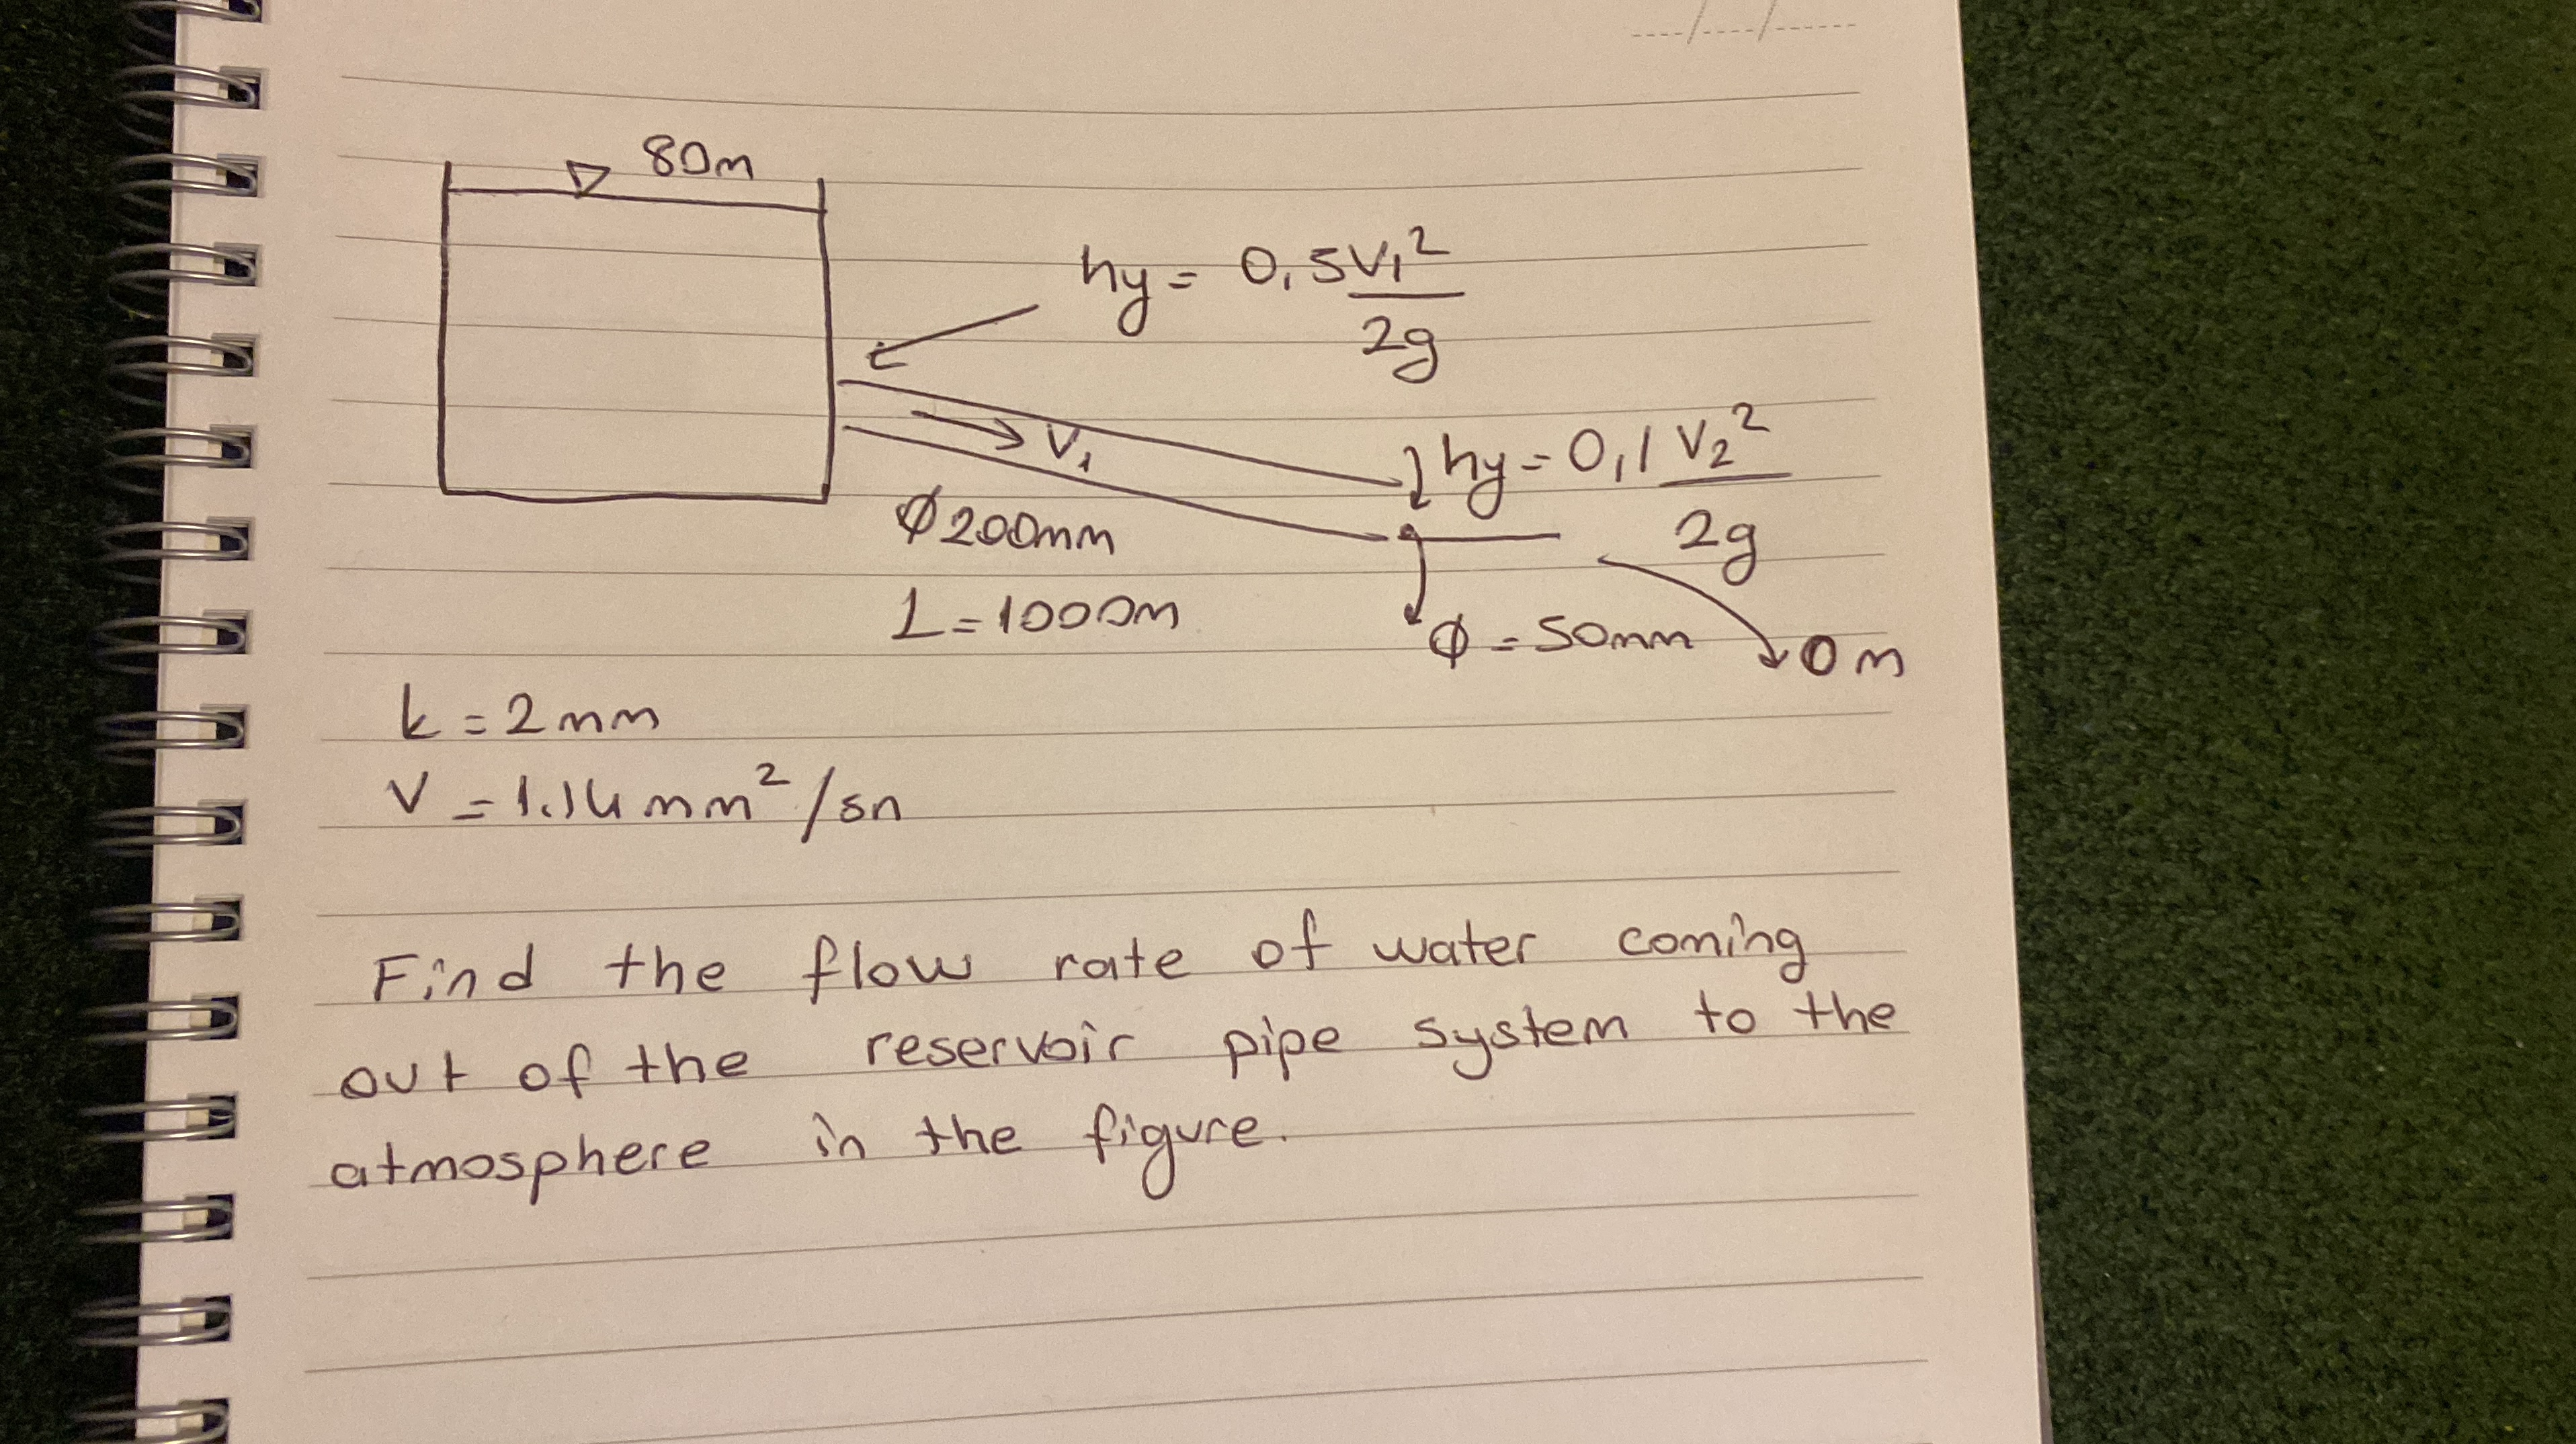 ----/----/------
▽ 80m
hy = 0,5 V₁²/2g
V₁
hy = 0,1 V₂²/2g
Ø200mm
L = 1000m
Ø = 50mm
0 m
k = 2mm
V = 1.14 mm²/sn
Find the flow rate of water coming
out of the reservoir pipe system to the
atmosphere in the figure.